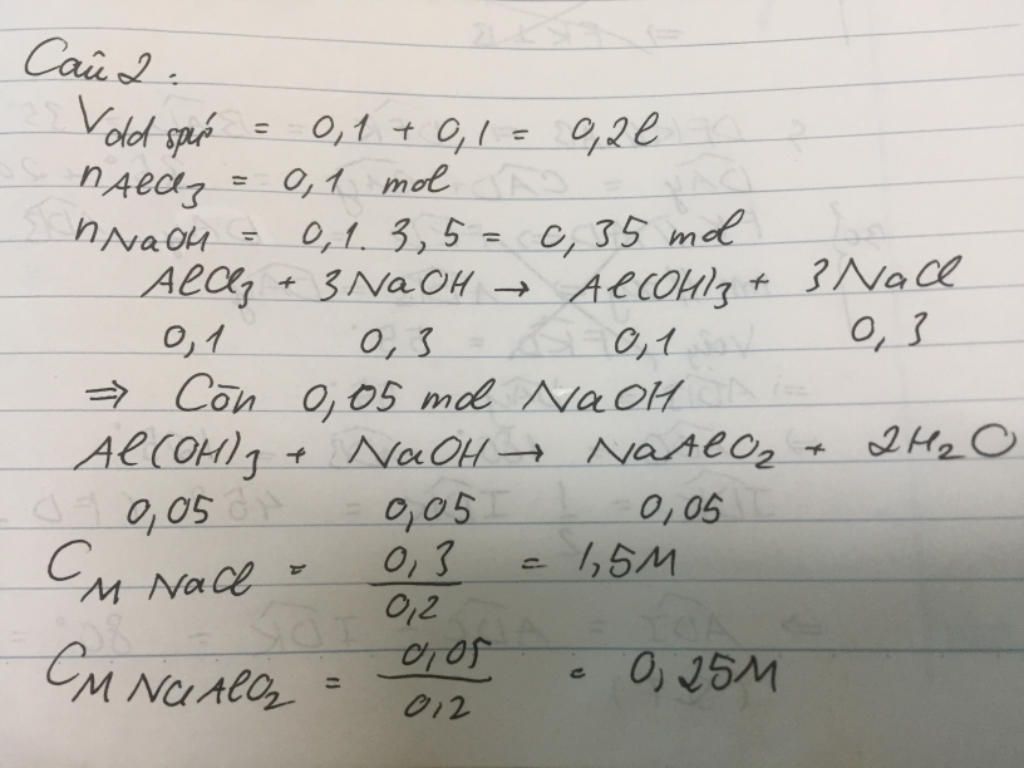 Câu 2:
Vdd spứ = 0,1 + 0,1 = 0,2l
nAlCl₃ = 0,1 mol
nNaOH = 0,1. 3,5 = 0,35 mol
AlCl₃ + 3NaOH → Al(OH)₃ + 3NaCl
0,1 0,3 0,1 0,3
⇒ Còn 0,05 mol NaOH
Al(OH)₃ + NaOH → NaAlO₂ + 2H₂O
0,05 0,05 0,05
CM NaCl = 0,3/0,2 = 1,5M
CM NaAlO₂ = 0,05/0,2 = 0,25M